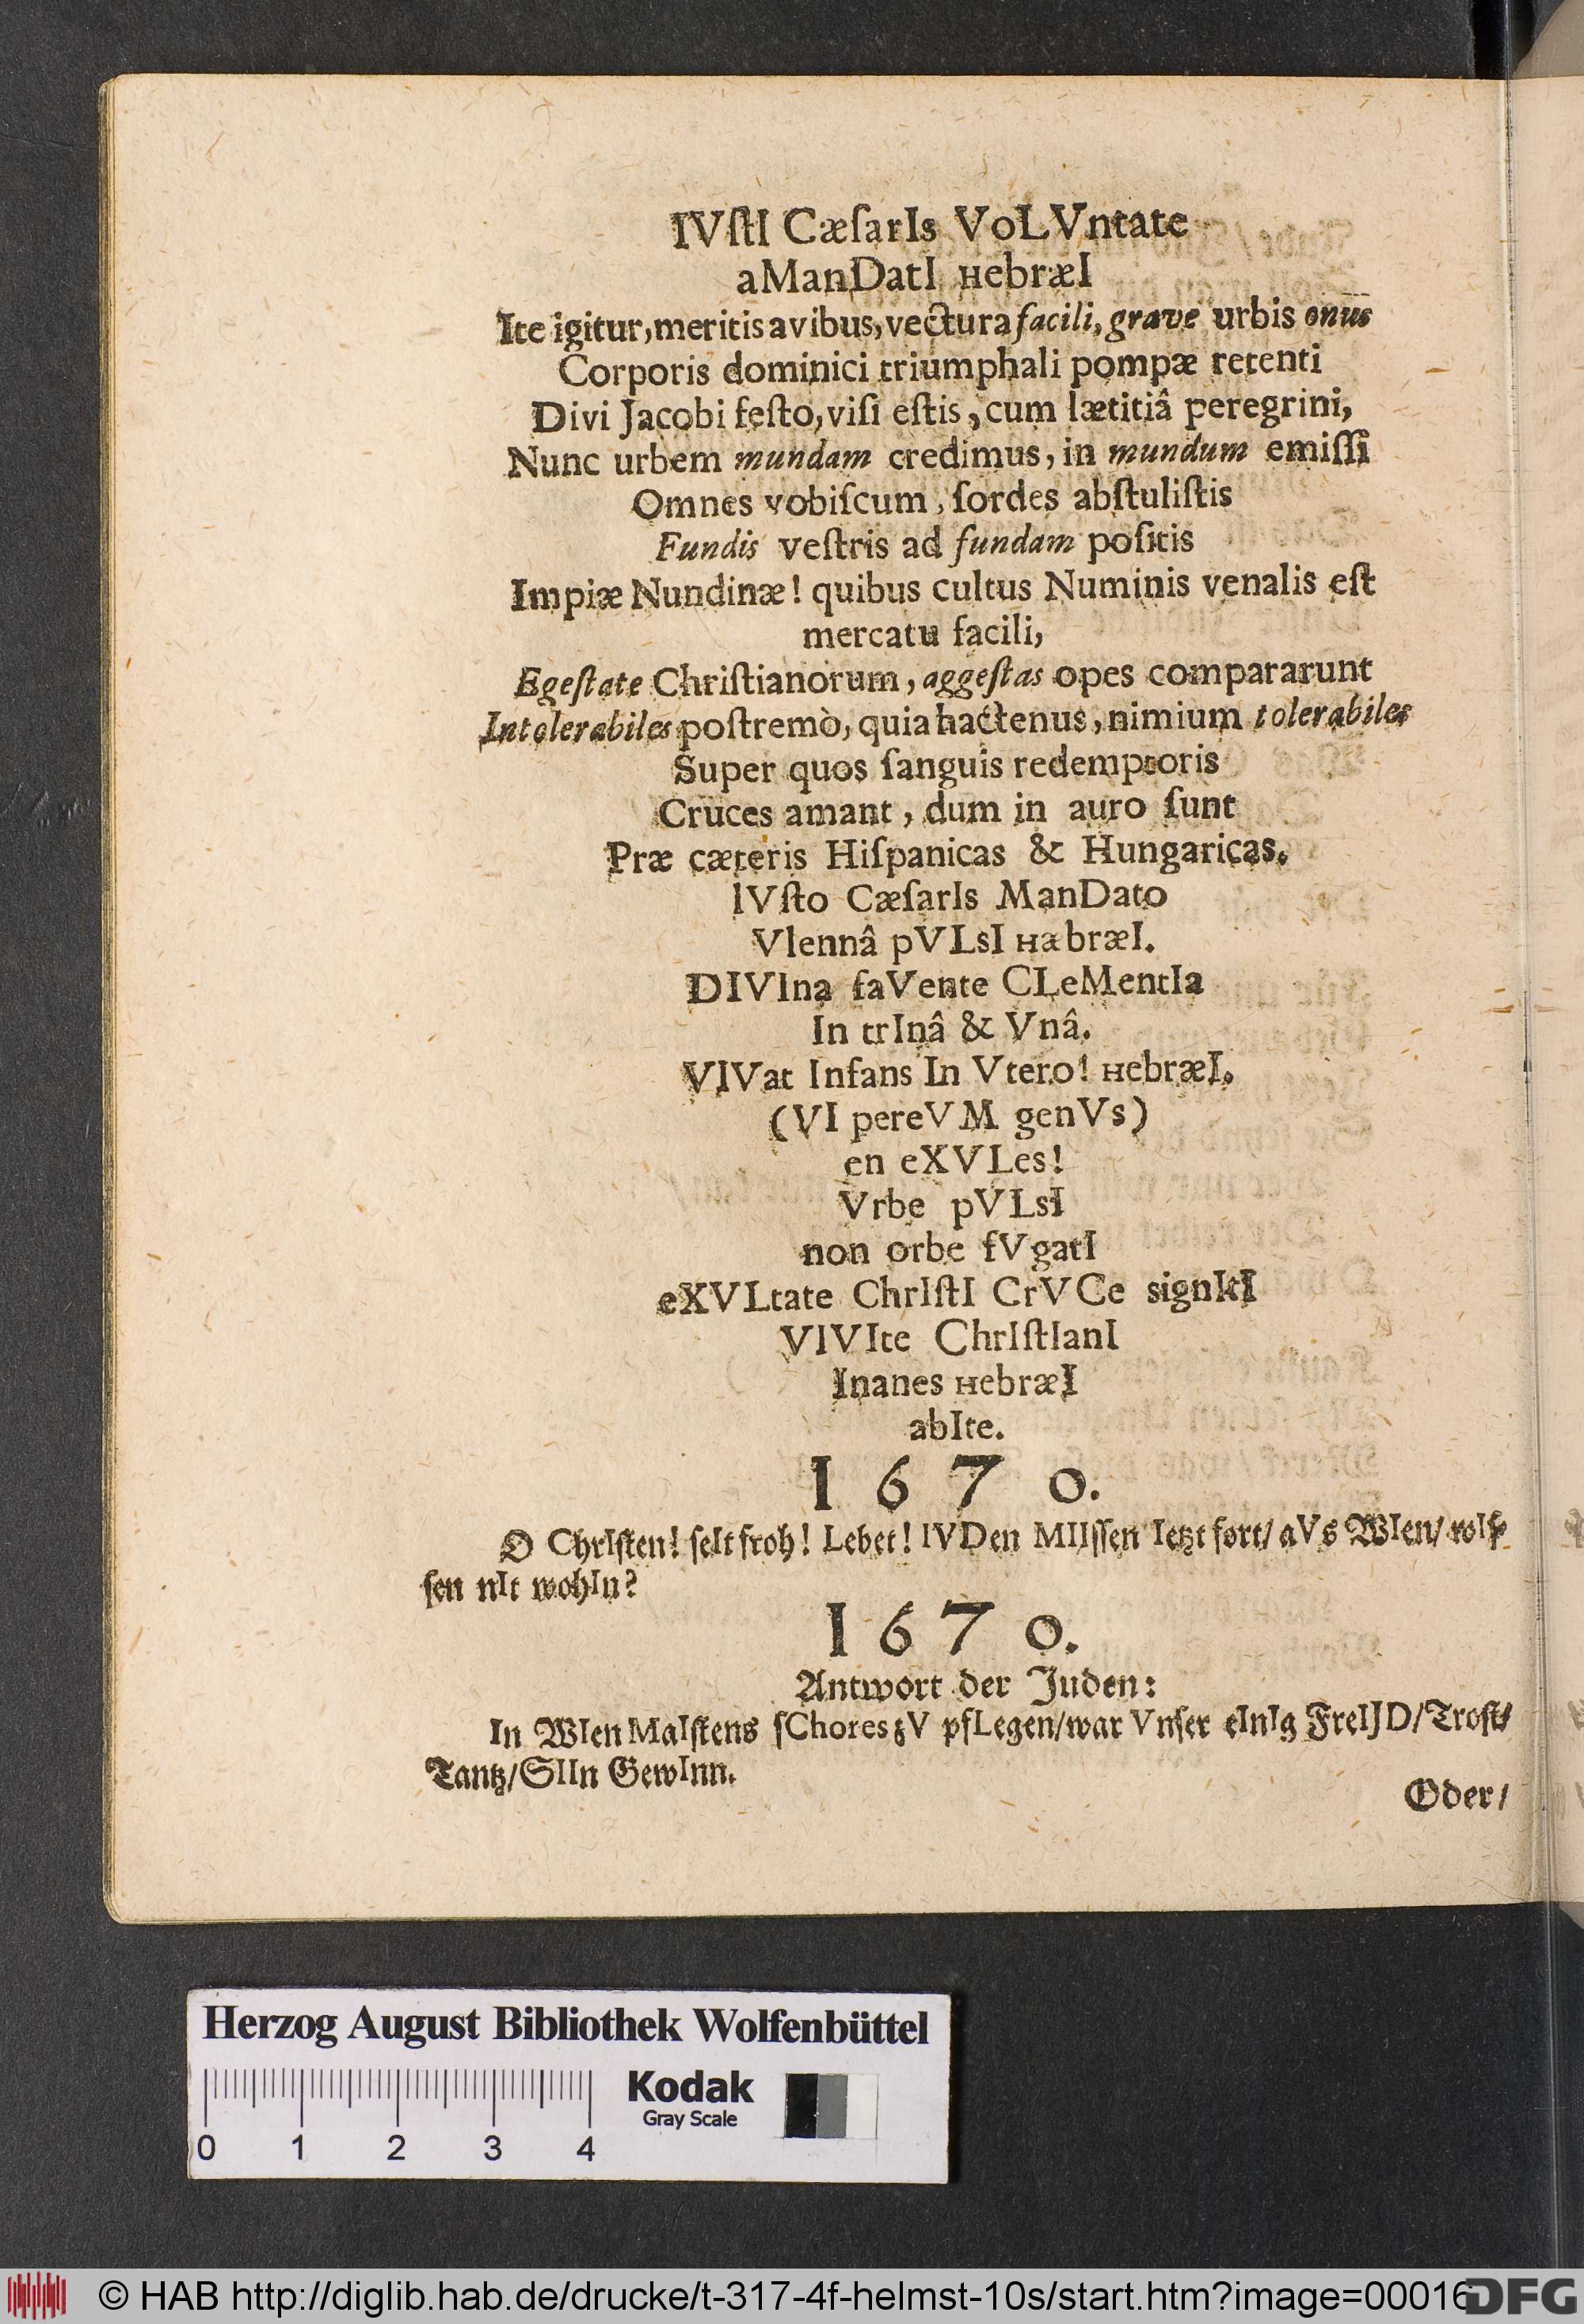 IVſtI CæſarIs VoLVntate
aManDatI ʜebræI
Ite igitur, meritis avibus, vectura facili, grave urbis onus
Corporis dominici triumphali pompæ retenti
Divi Jacobi feſto, viſi eſtis, cum lætitiâ peregrini,
Nunc urbem mundam credimus, in mundum emiſſi
Omnes vobiſcum, ſordes abſtuliſtis
Fundis veſtris ad fundam poſitis
Impiæ Nundinæ! quibus cultus Numinis venalis eſt
mercatu facili,
Egeſtate Chriſtianorum, aggeſtas opes compararunt
Intolerabiles poſtremò, quia hactenus, nimium tolerabiles
Super quos ſanguis redemptoris
Cruces amant, dum in auro ſunt
Præ cæteris Hiſpanicas & Hungaricas.
IVſto CæſarIs ManDato
VIennâ pVLsI ʜæbræI.
DIVIna faVente CLeMentIa
In trInâ & Vnâ.
VIVat Infans In Vtero! ʜebræI.
(VI pereVM genVs)
en eXVLes!
Vrbe pVLsI
non orbe fVgatI
eXVLtate ChrIſtI CrVCe signItI
VIVIte ChrIſtIanI
Inanes ʜebræI
abIte.
1670.
O ChrIſten! ſeIt froh! Lebet! IVDen MIIſſen Ietzt fort/ aVs WIen/ wIſ-
ſen nIt wohIn?
1670.
Antwort der Juden:
In WIen MaIſtens ſChores zV pfLegen/ war Vnſer eInIg FreIJD/ Troſt/
Tantz/ SIIn GewInn.
Oder/
Herzog August Bibliothek Wolfenbüttel
Kodak
Gray Scale
0 1 2 3 4
© HAB http://diglib.hab.de/drucke/t-317-4f-helmst-10s/start.htm?image=00016
DFG